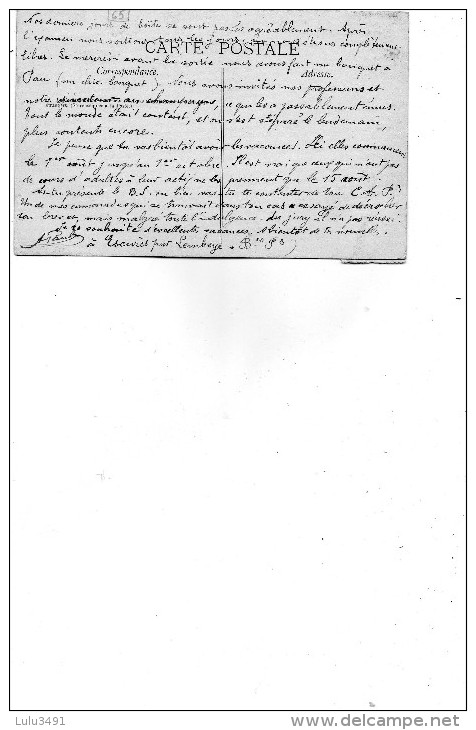 Nos derniers jours de boîte se sont passés agréablement. Après
l'examen nous sortions tous les jours, nous étions complètement
CARTE POSTALE
libres. Le mercredi avant la sortie nous avons fait un banquet à
Correspondance. Adresse.
Pau (un chic banquet), Nous avions invités nos professeurs et
notre
tout le monde était content, et on s'est séparé le lendemain,
plus contents encore.
Je pense que tu vas bientôt avoir les vacances. Ici elles commencent
le 1er août jusqu'au 1er octobre. Il est vrai que ceux qui n'ont pas
de cours d'adultes à leur actif ne les prennent que le 15 août.
As-tu présenté le B.S. ou bien vas-tu te contenter de ton C.A.P?
Un de mes camarades qui se trouvait dans ton cas a essayé de décrocher
son brevet, mais malgré toute l'indulgence du jury il n'a pas réussi.
Je te souhaite d'excellentes vacances. A bientôt de tes nouvelles.
à Escurès par Lembeye. Bses Pes
Lulu3491